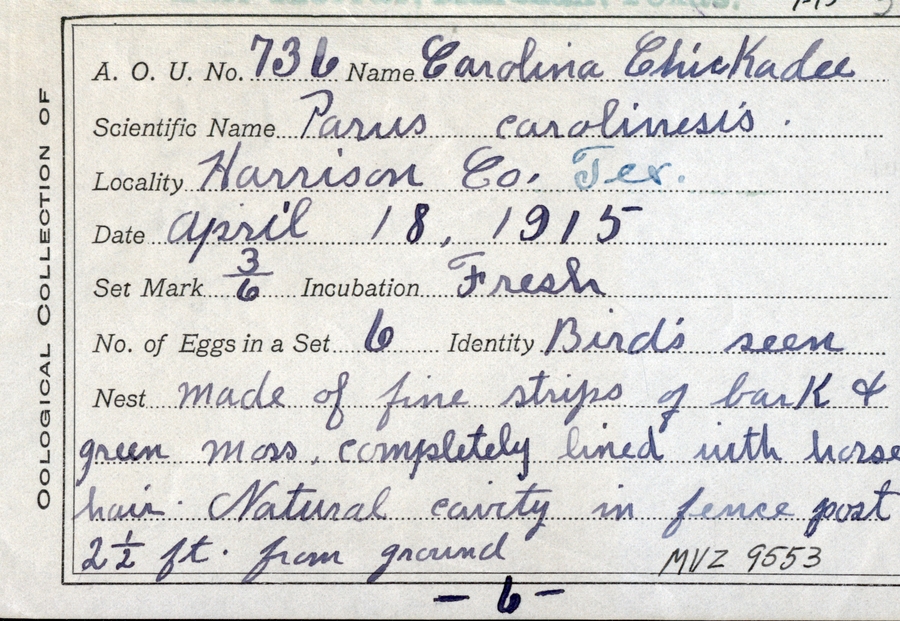 A. O. U. No. 736 Name Carolina Chickadee
Scientific Name Parus carolinesis.
Locality Harrison Co. Tex.
Date April 18, 1915
Set Mark 3/6 Incubation Fresh
No. of Eggs in a Set 6 Identity Bird's seen
Nest made of fine strips of bark &
green moss, completely lined with horse
hair. Natural cavity in fence post
2½ ft. from ground
MVZ 9553
- 6 -
OOLOGICAL COLLECTION OF